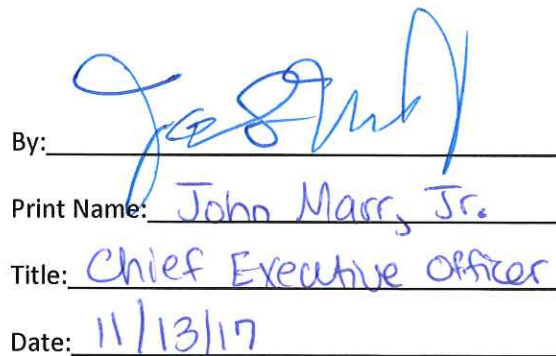 By:
Print Name: John Marr, Jr.
Title: Chief Executive Officer
Date: 11/13/17